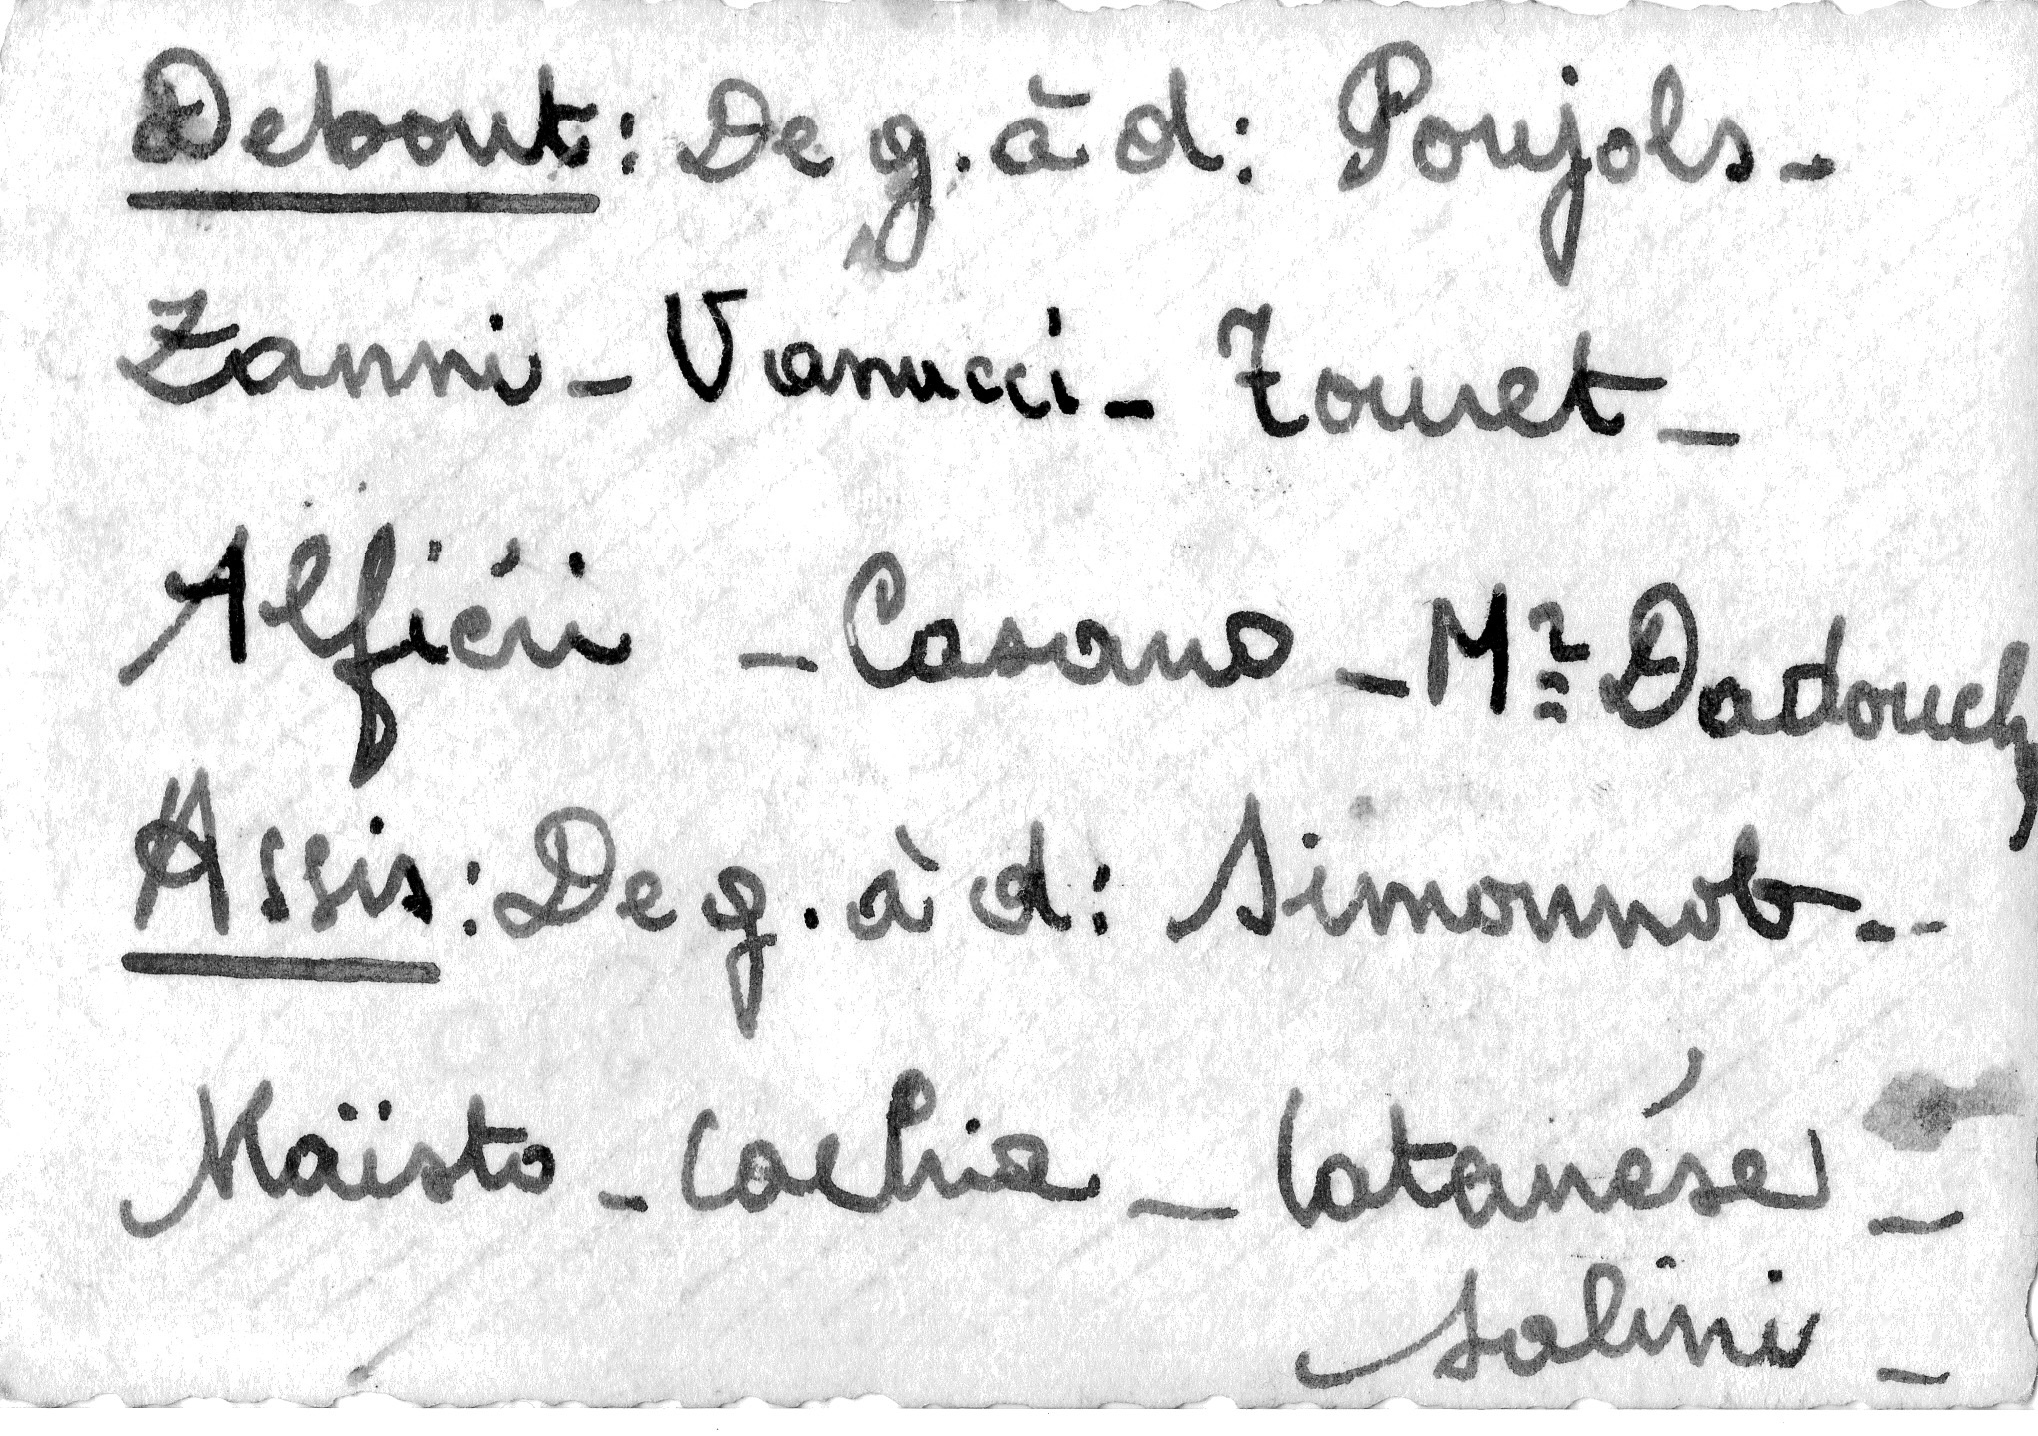 Debout: De g. à d: Poujols -
Zanni - Vanucci - Touret -
Alfiéri - Casano - Mr Dadouch
Assis: De g. à d: Simonnot - -
Maïsto - Cachia - Catanése -
Salini -